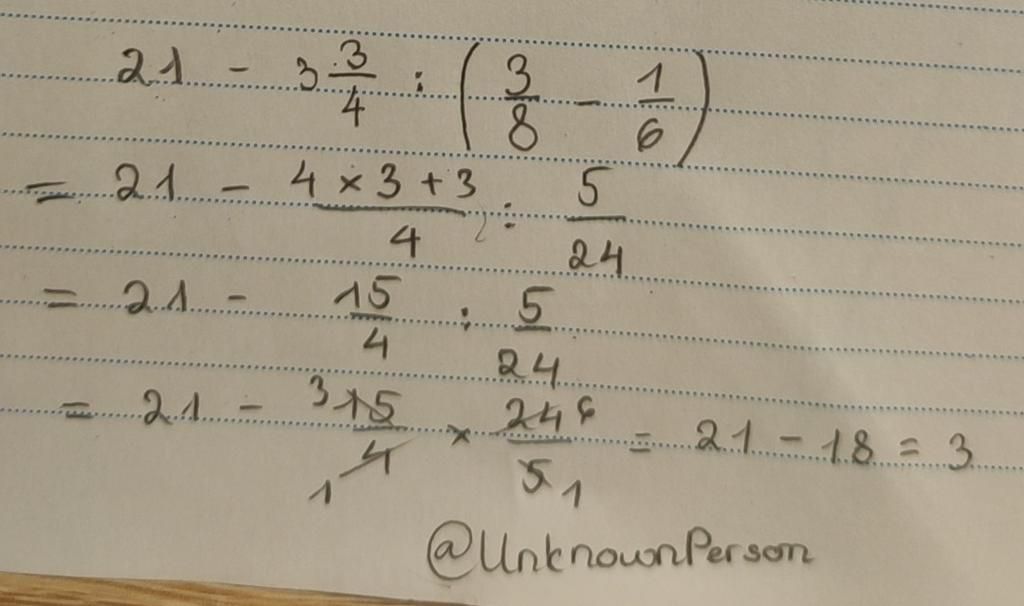 21 - 3 3/4 : (3/8 - 1/6)
= 21 - (4 × 3 + 3)/4 : 5/24
= 21 - 15/4 : 5/24
= 21 - 3 15/4 1 × 24 6/5 1 = 21 - 18 = 3
@UnknownPerson